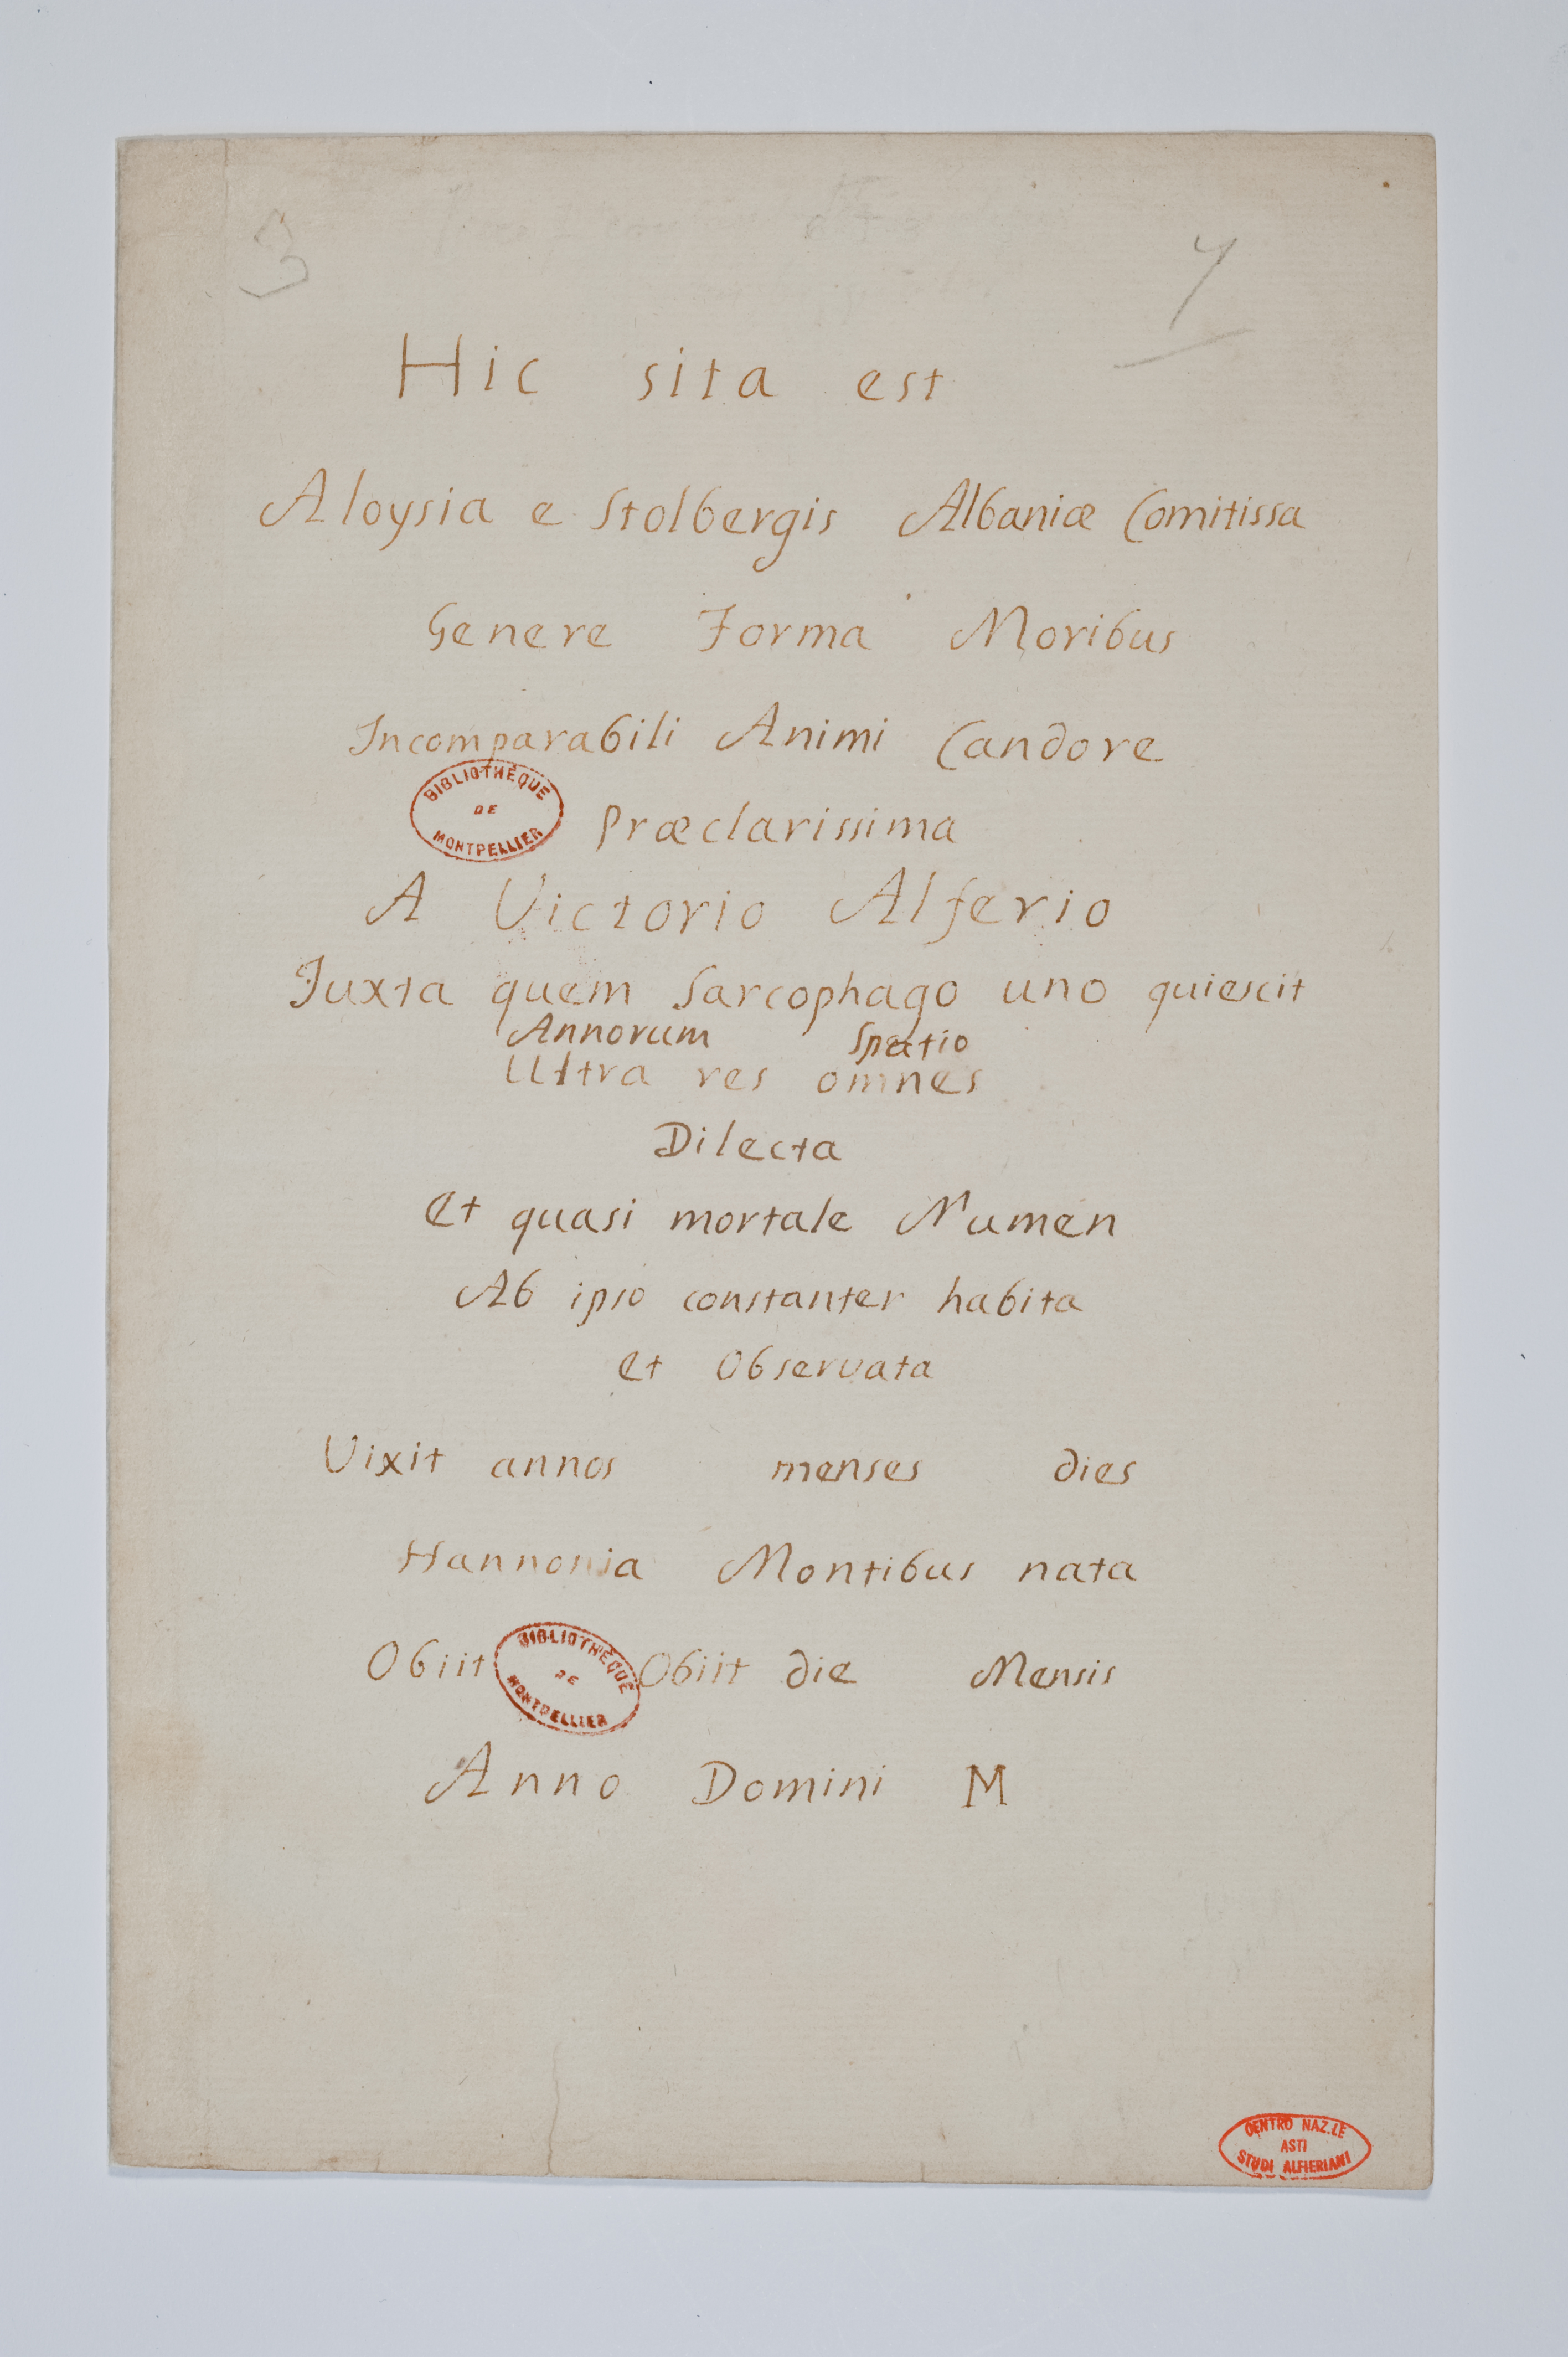 3 7
Hic sita est
Aloysia e Stolbergis Albaniæ Comitissa
Genere Forma Moribus
Incomparabili Animi Candore
BIBLIOTHÈQUE
DE
MONTPELLIER
Præclarissima
A Victorio Alferio
Juxta quem Sarcophago uno quiescit
Annorum Spatio
Ultra res omnes
Dilecta
Et quasi mortale Numen
Ab ipso constanter habita
Et Observata
Vixit annos menses dies
Hannonia Montibus nata
Obiit Obiit die Mensis
BIBLIOTHÈQUE
DE
MONTPELLIER
Anno Domini M
CENTRO NAZ.LE
ASTI
STUDI ALFIERIANI